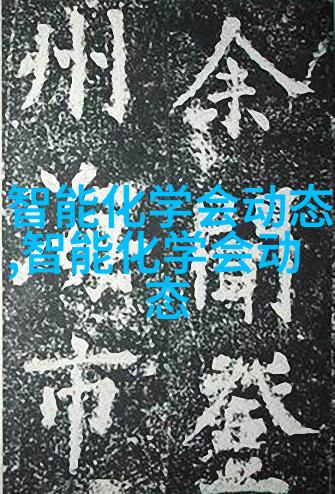 智能化学会动态
,智能化学会动
态
余聞登
州海市